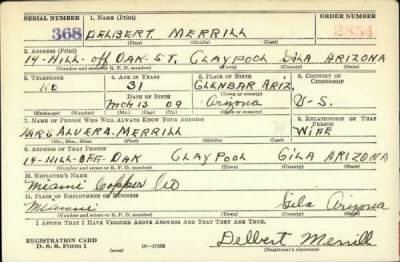 SERIAL NUMBER 1. NAME (Print) ORDER NUMBER
368 DELBERT MERRILL 2854
(First) (Middle) (Last)
2. ADDRESS (Print)
14-HILL-off OAK-ST. CLAYPOOL GILA ARIZONA
(Number and street or R. F. D. number) (Town) (County) (State)
3. TELEPHONE 4. AGE IN YEARS 5. PLACE OF BIRTH 6. COUNTRY OF CITIZENSHIP
NO 31 GLENBAR ARIZ.
DATE OF BIRTH (Town or county)
MCH 13 09 Arizona U-S.
(Mo.) (Day) (Yr.) (State or country)
7. NAME OF PERSON WHO WILL ALWAYS KNOW YOUR ADDRESS 8. RELATIONSHIP OF THAT PERSON
MRS ALVERA. MERRILL WIFE
(Mr., Mrs., Miss) (First) (Middle) (Last)
9. ADDRESS OF THAT PERSON
14-HILL-OFF-OAK CLAYPOOL GILA ARIZONA
(Number and street or R. F. D. number) (Town) (County) (State)
10. EMPLOYER'S NAME
Miami Copper Co
11. PLACE OF EMPLOYMENT OR BUSINESS
Miami Gila Arizona
(Number and street or R. F. D. number) (Town) (County) (State)
I AFFIRM THAT I HAVE VERIFIED ABOVE ANSWERS AND THAT THEY ARE TRUE.
REGISTRATION CARD
D. S. S. Form 1 (over) 16—17105 Delbert Merrill
(Registrant's signature)